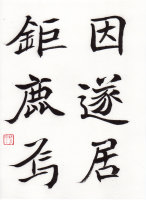 因遂居
鉅鹿焉